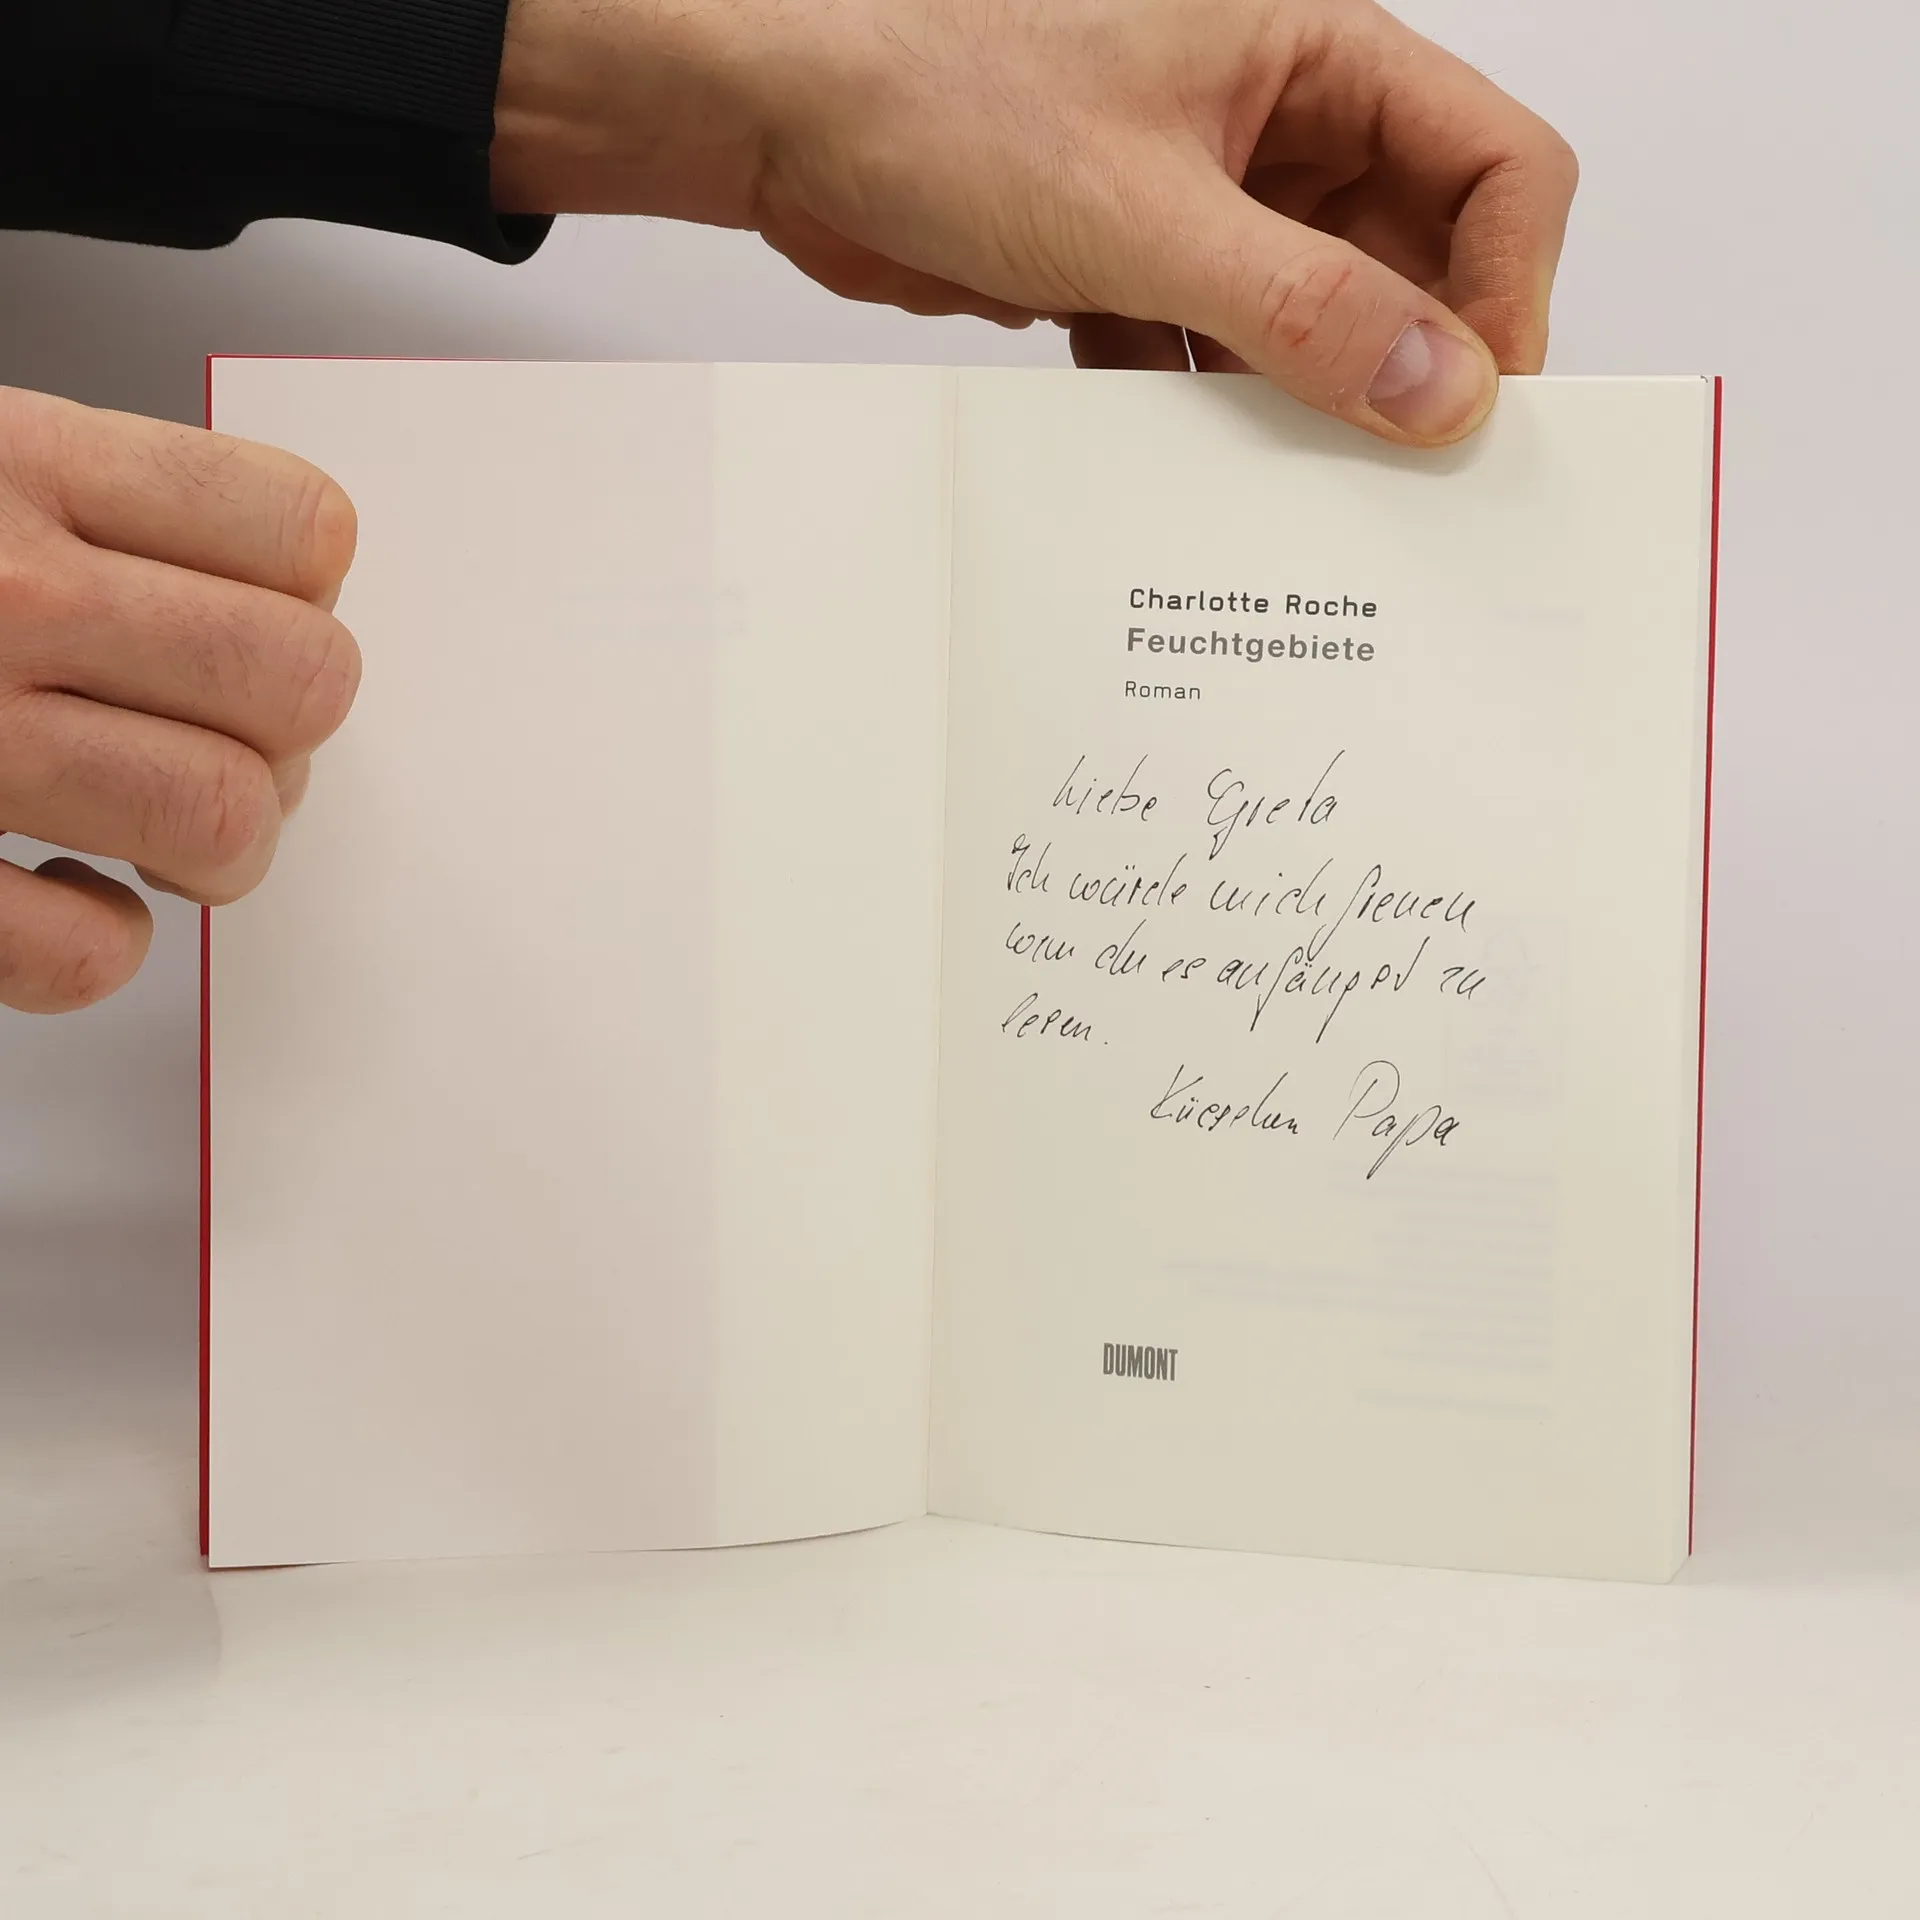 Charlotte Roche
Feuchtgebiete
Roman
Liebe Greta
Ich würde mich freuen
wenn du es anfängst zu
lesen.
Küsschen Papa
DUMONT